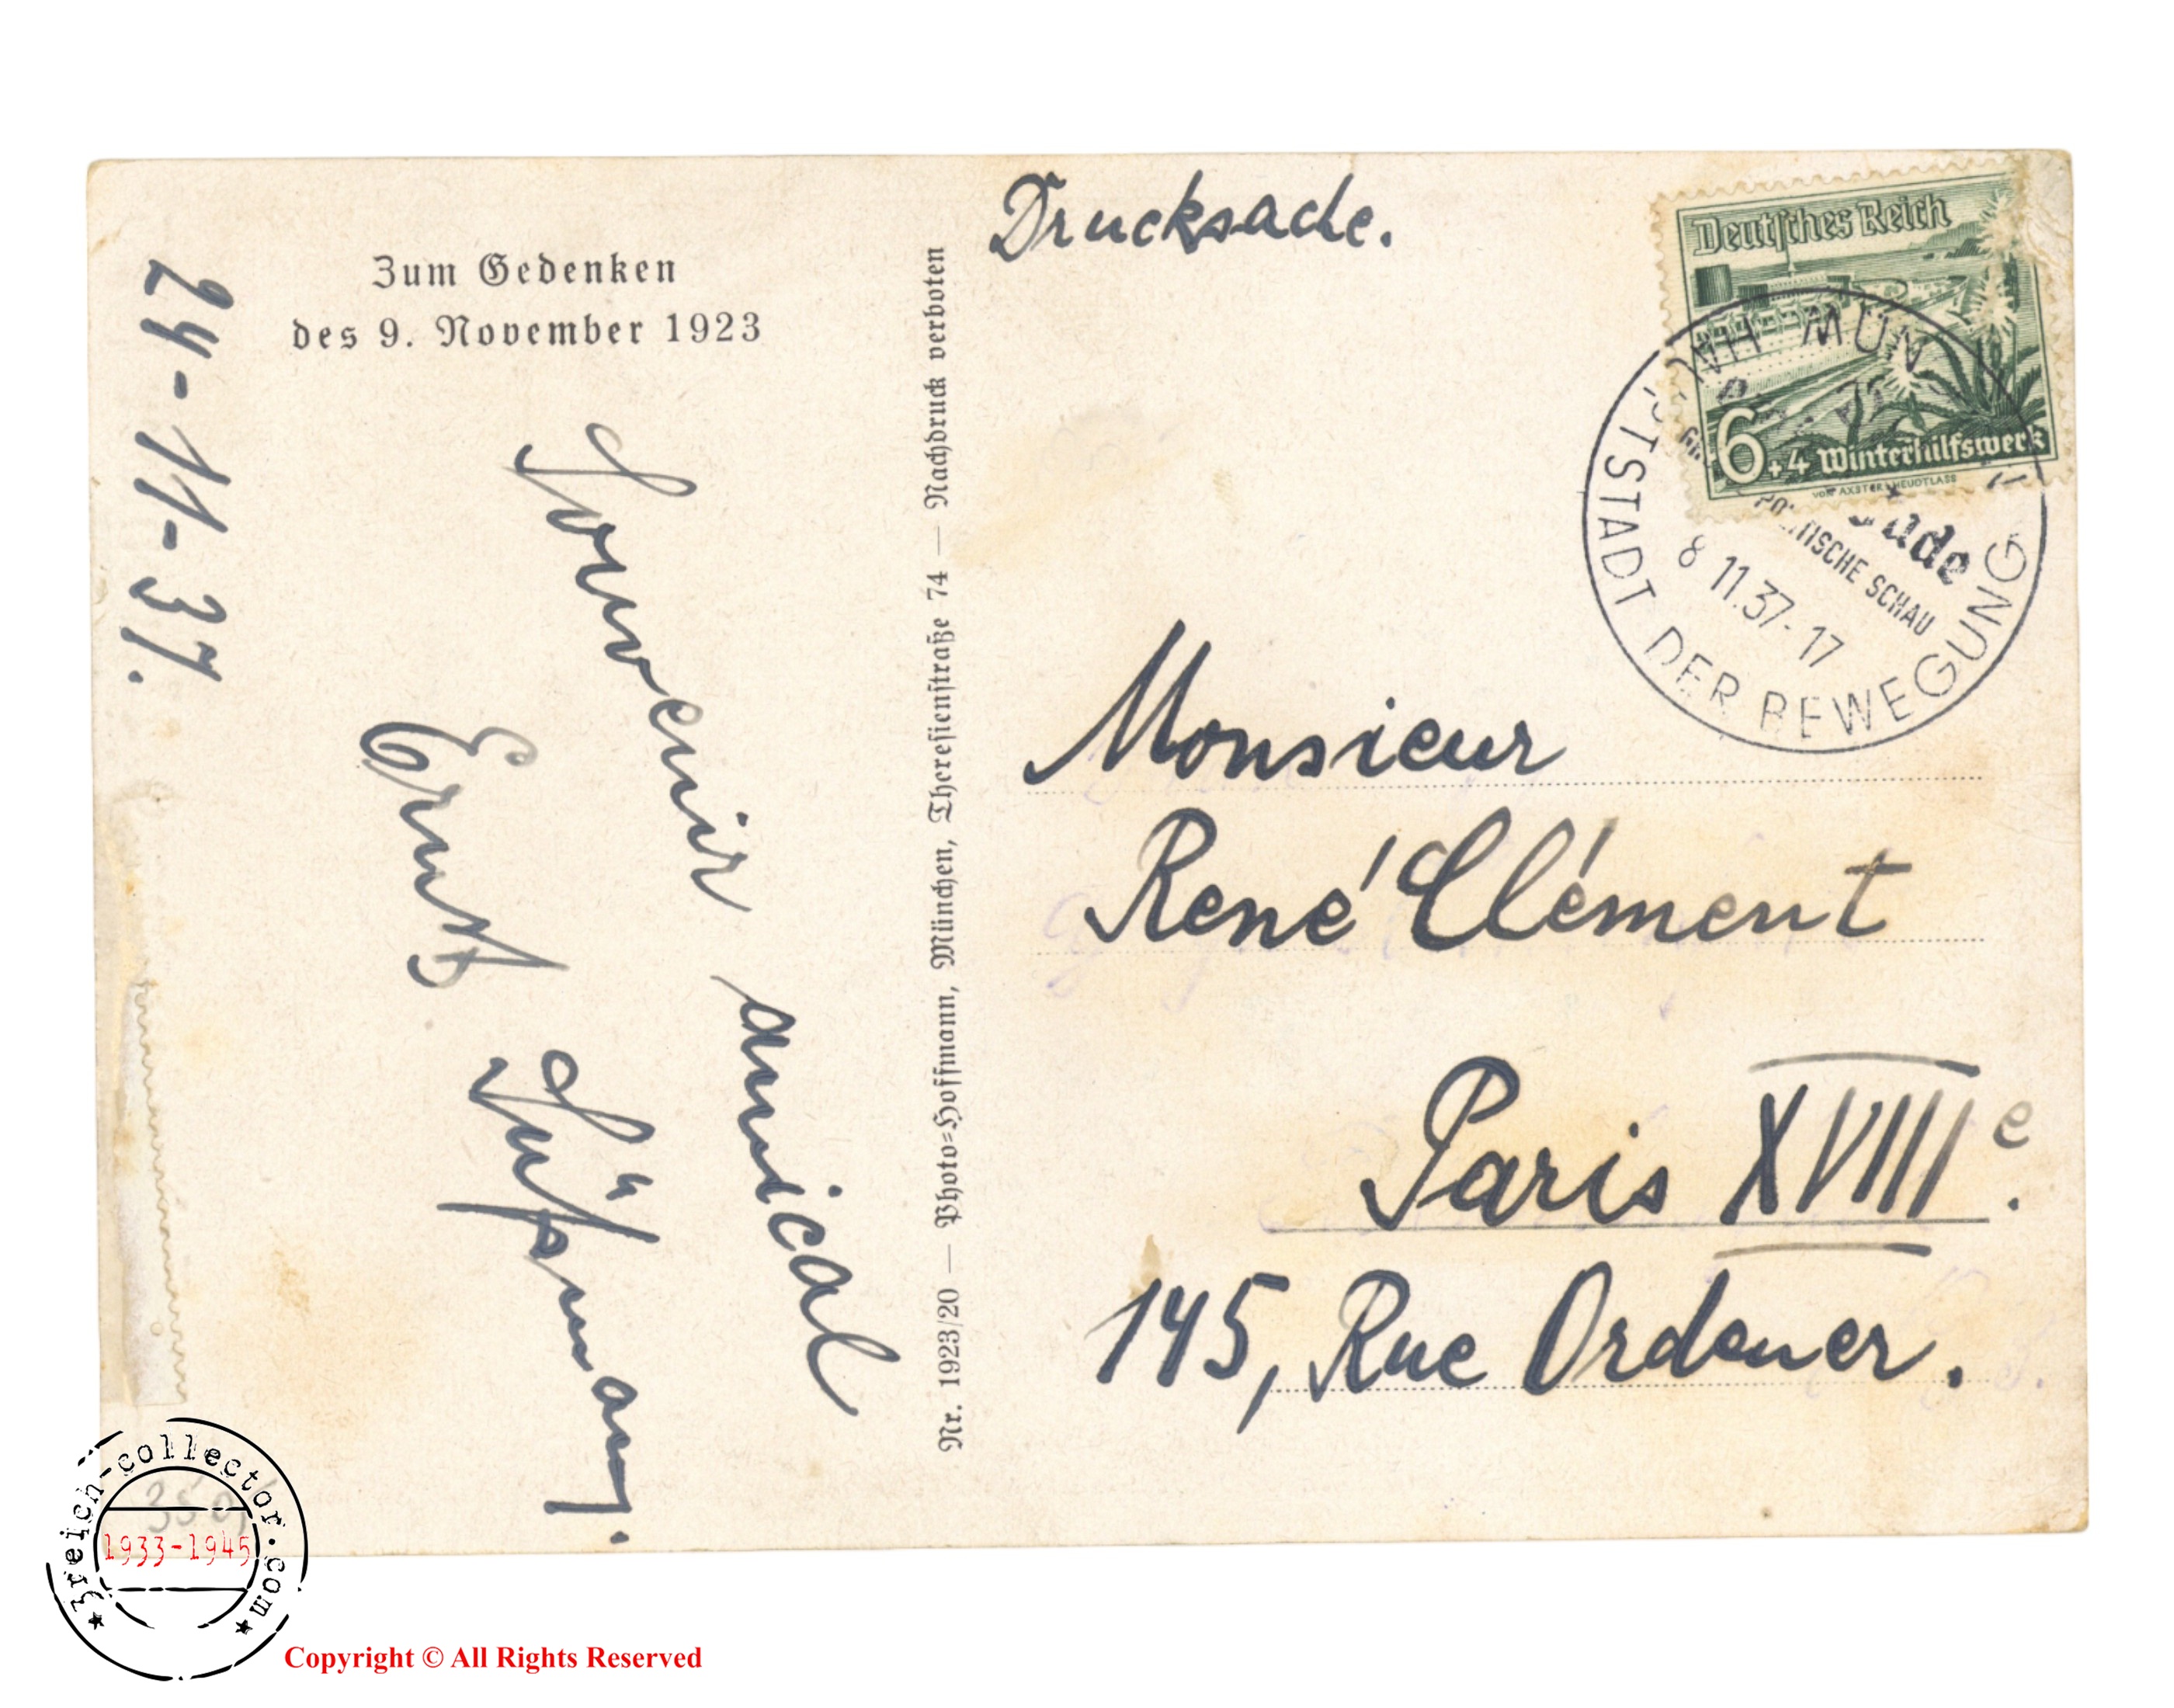 Zum Gedenken
des 9. November 1923
24-11-37.
Souvenir amical
Ernst
Nr. 1923/20 — Photo-Hoffmann, München, Theresienstraße 74 — Nachdruck verboten
Drucksache.
Deutsches Reich
6+4 Winterhilfswerk
POLITISCHE SCHAU
8 11.37-17
TSTADT DER BEWEGUNG
Monsieur
René Clément
Paris XVIIIe.
145, Rue Ordener.
3reich-collector.com
1933-1945
Copyright © All Rights Reserved